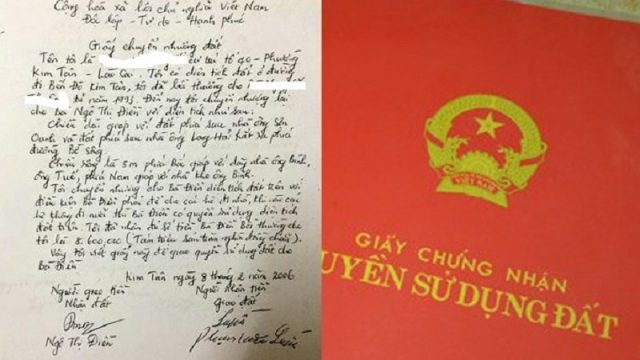 Cộng hoà xã hội chủ nghĩa Việt Nam
Độc lập - Tự do - Hạnh phúc
Giấy chuyển nhường đất
Tên tôi là cư trú tổ 40 - Phường
Kim Tân - Lào Cai. Tôi có diện tích đất ở đường
đi Bến Đá Kim Tân, tôi đã bồi thường cho
từ năm 1993. Đến nay tôi chuyển nhượng lại
cho bà Ngô Thị Điền với diện tích như sau.
Chiều dài giáp với đất phía sau nhà ông
Oanh và đất phía sau nhà ông Long Hải
đường Bê
Chiều rộng là 5m phía Bắc giáp với dãy nhà ông Bình,
ông Tuế, phía Nam giáp với nhà kho ông Bình.
Tôi chuyển nhượng cho Bà Điền diện tích đất trên với
điều kiện Bà Điền phải để cho các hộ đi nhờ, khi các
hộ không đi nữa thì Bà Điền có quyền sử dụng diện tích
đất trên. Tôi đã nhận đủ số tiền Bà Điền bồi thường cho
tôi là 8.600.000 (Tám triệu sáu trăm nghìn đồng chẵn).
Vậy tôi viết giấy này để giao quyền sử dụng đất cho
Bà Điền
Kim Tân ngày 8 tháng 2 năm 2006
Người giao tiền Người nhận tiền
Nhận đất Giao đất
Ngô Thị Điền
VIỆT NAM
GIẤY CHỨNG NHẬN
UYỀN SỬ DỤNG ĐẤT